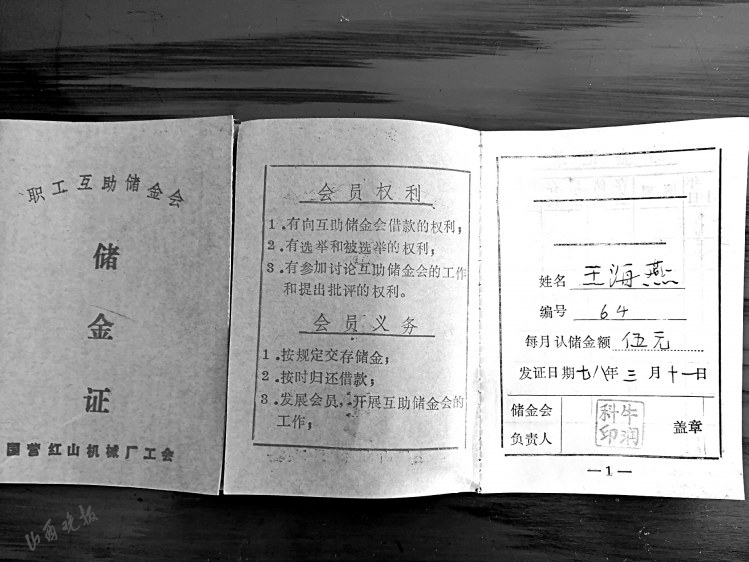 职工互助储金会
储
金
证
国营红山机械厂工会
会员权利
1.有向互助储金会借款的权利；
2.有选举和被选举的权利；
3.有参加讨论互助储金会的工作
和提出批评的权利。
会员义务
1.按规定交存储金；
2.按时归还借款；
3.发展会员，开展互助储金会的
工作；
姓名 王海燕
编号 64
每月认储金额 伍元
发证日期七八年三月十一日
储金会
负责人
科牛
印润
盖章
—1—
山西晚报